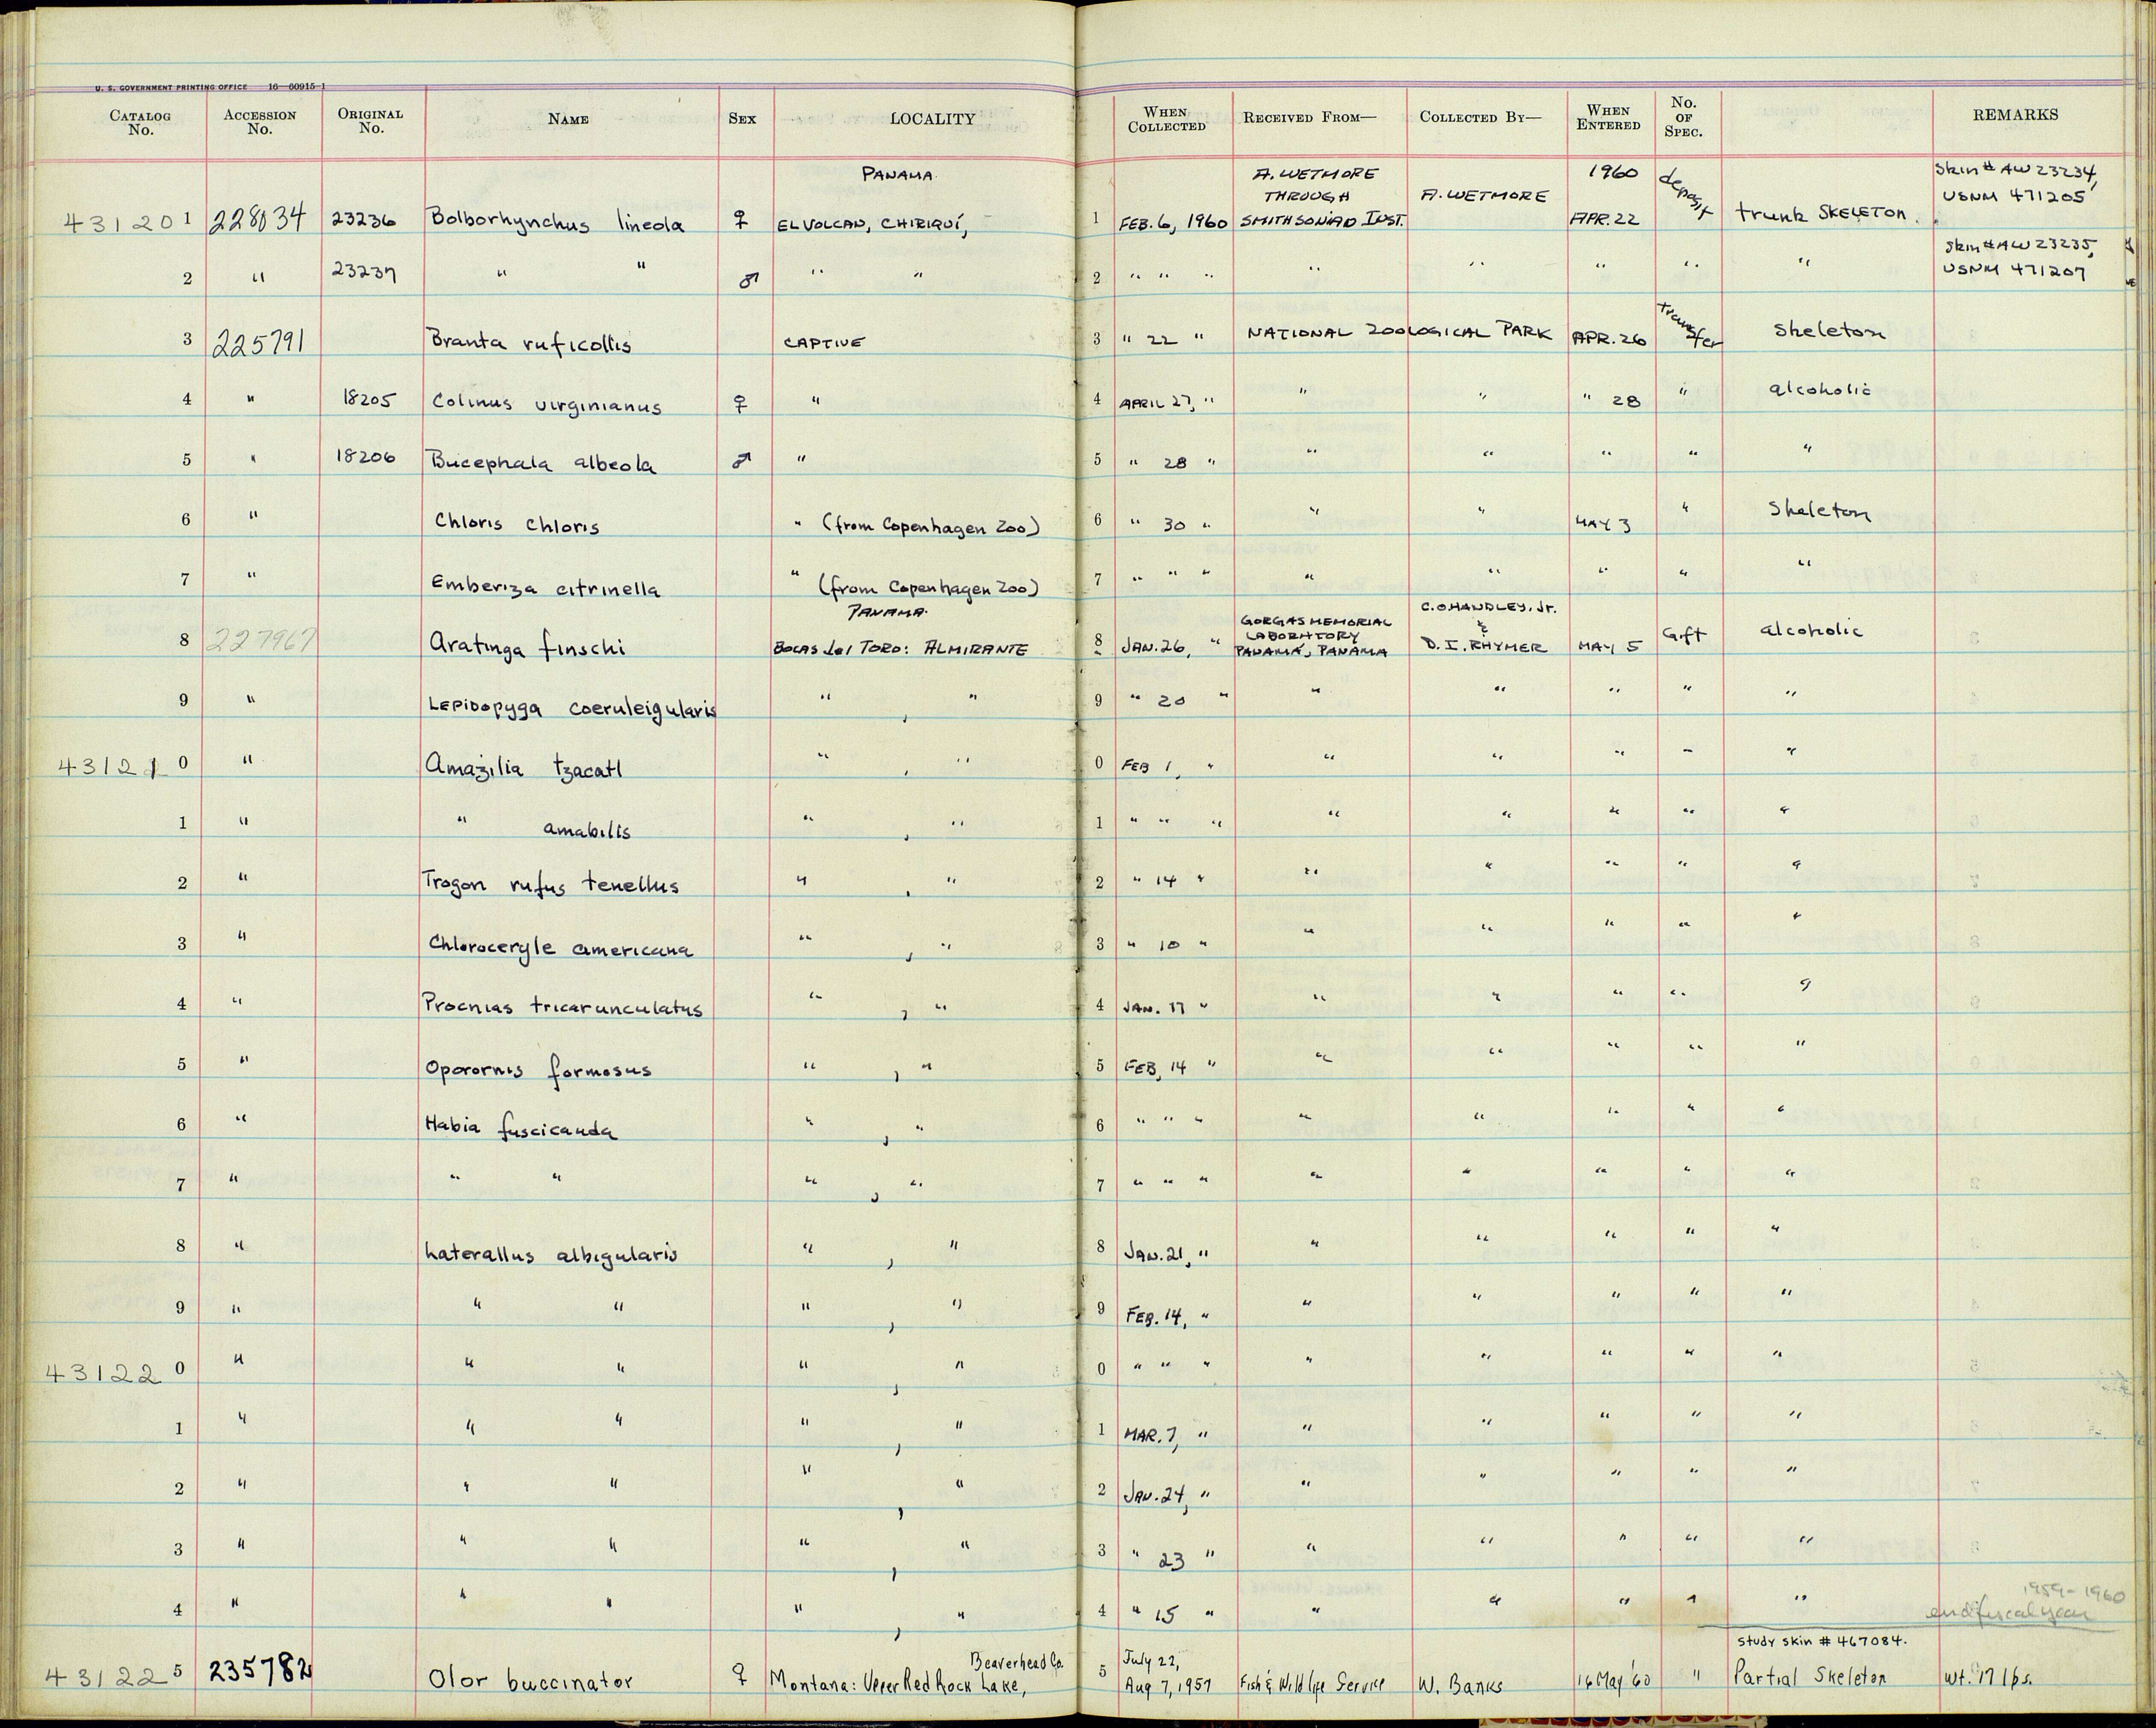 U. S. GOVERNMENT PRINTING OFFICE 16—60915-1
CATALOG No. ACCESSION No. ORIGINAL No. NAME SEX LOCALITY WHEN COLLECTED RECEIVED FROM— COLLECTED BY— WHEN ENTERED No. OF SPEC. REMARKS
PANAMA A. WETMORE 1960 Skin # AW 23234,
THROUGH A. WETMORE deposit USNM 471205
431201 228034 23236 Bolborhynchus lineola ♀ EL VOLCAN, CHIRIQUÍ, 1 FEB. 6, 1960 SMITHSONIAN INST. APR. 22 trunk SKELETON.
Skin # AW 23235,
2 " 23237 " " ♂ " " 2 " " " " " " " " USNM 471207
3 225791 Branta ruficollis CAPTIVE 3 " 22 " NATIONAL ZOOLOGICAL PARK APR. 26 transfer skeleton
4 " 18205 Colinus virginianus ♀ " 4 APRIL 27, " " " " 28 " alcoholic
5 " 18206 Bucephala albeola ♂ " 5 " 28 " " " " " "
6 " Chloris chloris " (from Copenhagen Zoo) 6 " 30 " " " MAY 3 " Skeleton
7 " Emberiza citrinella " (from Copenhagen Zoo) 7 " " " " " " " "
PANAMA. GORGAS MEMORIAL C. O. HANDLEY, Jr.
LABORATORY &
8 227967 Aratinga finschi BOCAS del TORO: ALMIRANTE 8 JAN. 26, " PANAMÁ, PANAMA D. I. RHYMER MAY 5 Gift alcoholic
9 " LEPIDOpyga coeruleigularis " , " 9 " 20 " " " " " "
431210 " Amazilia tzacatl " , " 0 FEB 1, " " " " " "
1 " " amabilis " , " 1 " " " " " " " "
2 " Trogon rufus tenellus " , " 2 " 14 " " " " " "
3 " Chloroceryle americana " , " 3 " 10 " " " " " "
4 " Procnias tricarunculatus " , " 4 JAN. 17 " " " " " "
5 " Oporornis formosus " , " 5 FEB, 14 " " " " " "
6 " Habia fuscicauda " , " 6 " " " " " " " "
7 " " " " , " 7 " " " " " " " "
8 " Laterallus albigularis " , " 8 JAN. 21, " " " " " "
9 " " " " , " 9 FEB. 14, " " " " " "
431220 " " " " , " 0 " " " " " " " "
1 " " " " , " 1 MAR. 7, " " " " " "
2 " " " " , " 2 JAN. 24, " " " " " "
3 " " " " , " 3 " 23 " " " " " "
4 " " " " , " 4 " 15 " " " " " "
1959-1960
end fiscal year
Beaverhead Co. July 22, Study skin # 467084.
431225 235782 Olor buccinator ♀ Montana: Upper Red Rock Lake, 5 Aug 7, 1957 Fish & Wildlife Service W. Banks 16 May '60 " Partial Skeleton Wt. 17 lbs.